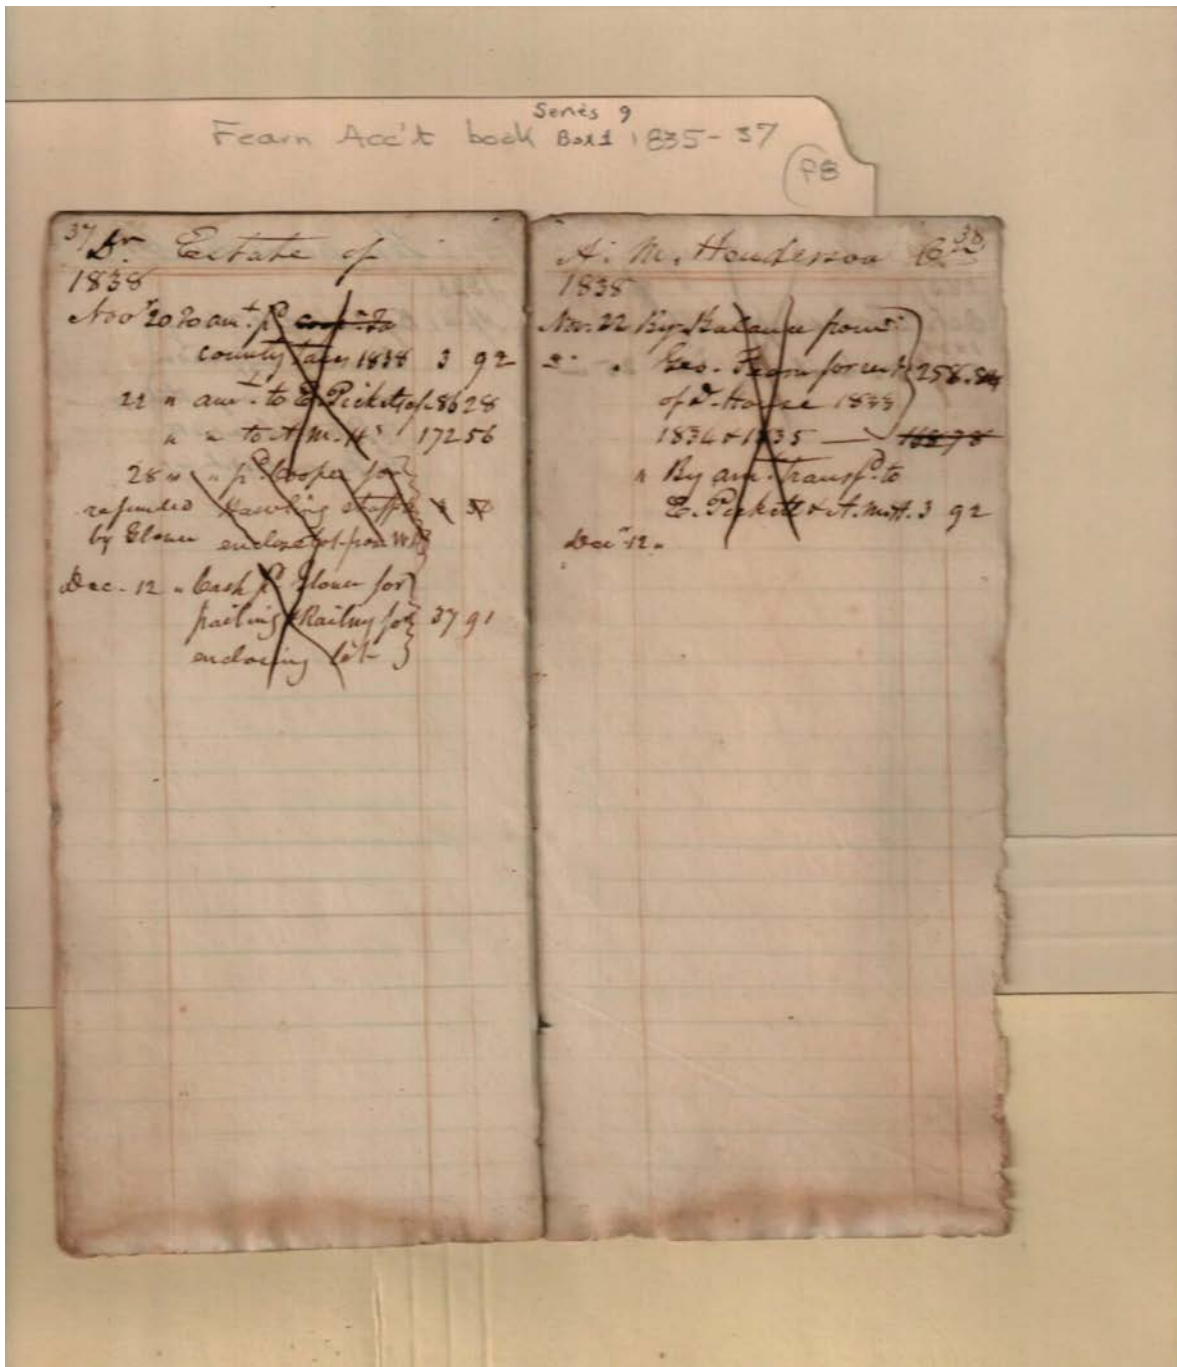 Series 9
Fearn Acc't book Box 1 1835-37
P8
37 Dr. Estate of
1838
Novr 20 To amt. pd
county taxes 1838 3 92
22 " amt. to E. Pickett of 86 28
" " to A. M. H. 172 56
28 " " pd. Cooper for
refunded Hawling stuff
by Glover enclose lot from
Dec. 12 " Cash pd. Glover for
pailing & Railing for 37 91
enclosing lot
A. M. Henderson Cr. 38
1838
Nov. 22 By Balance from
" Geo. Fearn for rent 258.84
of d. House 1833
1834 & 1835 — 168 78
" By amt. transfd. to
E. Pickett & A. M. H. 3 92
Decr 12 "